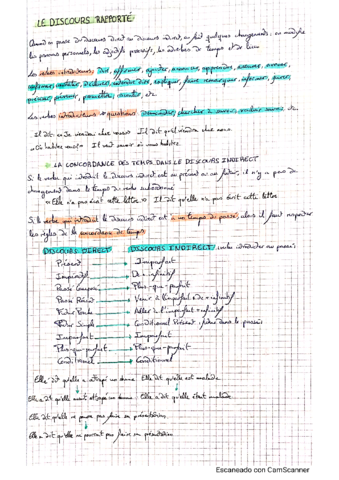 LE DISCOURS RAPPORTÉ
Quand on passe du discours direct au discours indirect, on fait quelques changements: on modifie
les pronoms personnels, les adjectifs possessifs, les adverbes de temps et de lieu
Les verbes introducteurs: dire, affirmer, ajouter, annoncer, apprendre, assurer, avouer,
confirmer, constater, déclarer, entendre dire, expliquer, faire remarquer, informer, jurer,
préciser, prévenir, promettre, raconter, etc
Les verbes introducteurs questions: demander, chercher à savoir, vouloir savoir, etc.
Il dit: «Je viendrai chez vous» Il dit qu'il viendra chez nous.
«Où habitez-vous?» Il veut savoir où nous habitons.
LA CONCORDANCE DES TEMPS DANS LE DISCOURS INDIRECT
Si le verbe qui introduit le discours indirect est au présent ou au futur, il n'y a pas de
changement dans le temps du verbe
«Elle n'a pas écrit cette lettre» Il dit qu'elle n'a pas écrit cette lettre
Si le verbe qui introduit le discours indirect est à un temps du passé, alors il faut respecter
les règles de la concordance des temps
DISCOURS DIRECT DISCOURS INDIRECT, verbe introducteur au passé
Présent Imparfait
Impératif De + infinitif
Passé Composé Plus-que-parfait
Passé Récent Venir à l'imparfait + de + infinitif
Futur Proche Aller à l'imparfait + infinitif
Futur Simple Conditionnel Présent, futur dans le passé
Imparfait Imparfait
Plus-que-parfait Plus-que-parfait
Conditionnel Conditionnel
Elle dit qu'elle a attrapé un rhume. Elle dit qu'elle est malade.
Elle a dit qu'elle avait attrapé un rhume. Elle a dit qu'elle était malade
Elle dit qu'elle ne pourra pas faire sa présentation
Elle a dit qu'elle ne pourrait pas faire sa présentation
Escaneado con CamScanner